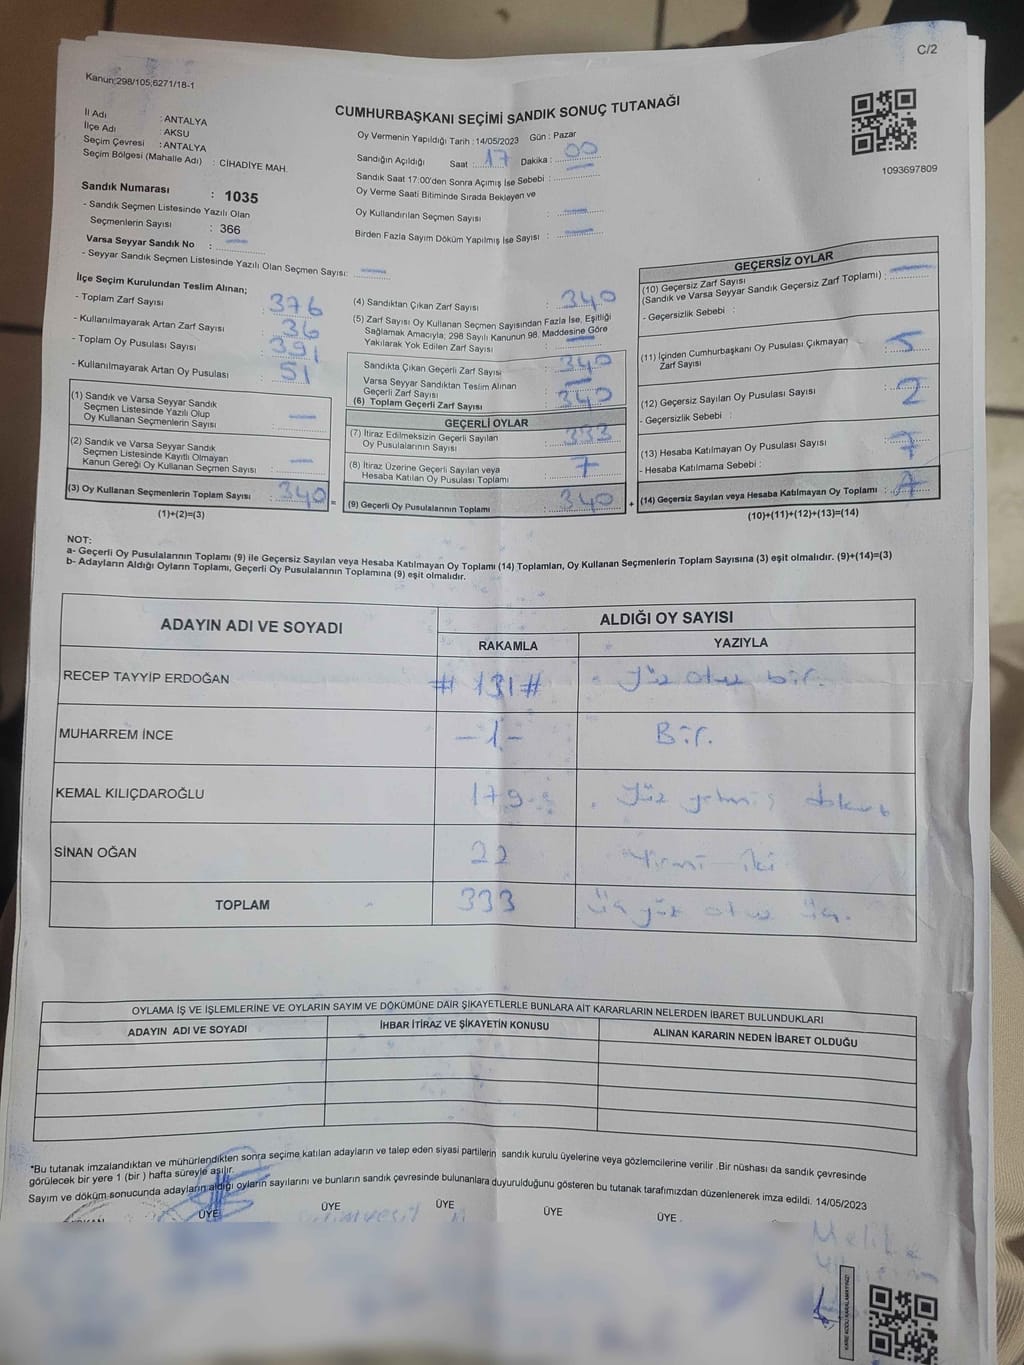 C/2
Kanun:298/105,6271/18-1
CUMHURBAŞKANI SEÇİMİ SANDIK SONUÇ TUTANAĞI
1093697809
İl Adı : ANTALYA
İlçe Adı : AKSU
Seçim Çevresi : ANTALYA
Seçim Bölgesi (Mahalle Adı) : CİHADİYE MAH.
Sandık Numarası : 1035
- Sandık Seçmen Listesinde Yazılı Olan
Seçmenlerin Sayısı : 366
Varsa Seyyar Sandık No : —
- Seyyar Sandık Seçmen Listesinde Yazılı Olan Seçmen Sayısı: —
Oy Vermenin Yapıldığı Tarih : 14/05/2023 Gün : Pazar
Sandığın Açıldığı Saat : 17 Dakika : 00
Sandık Saat 17:00'den Sonra Açımış İse Sebebi :
Oy Verme Saati Bitiminde Sırada Bekleyen ve
Oy Kullandırılan Seçmen Sayısı : —
Birden Fazla Sayım Döküm Yapılmış İse Sayısı : —
İlçe Seçim Kurulundan Teslim Alınan;
- Toplam Zarf Sayısı : 376
- Kullanılmayarak Artan Zarf Sayısı : 36
- Toplam Oy Pusulası Sayısı : 391
- Kullanılmayarak Artan Oy Pusulası : 51
(1) Sandık ve Varsa Seyyar Sandık
Seçmen Listesinde Yazılı Olup
Oy Kullanan Seçmenlerin Sayısı : —
(2) Sandık ve Varsa Seyyar Sandık
Seçmen Listesinde Kayıtlı Olmayan
Kanun Gereği Oy Kullanan Seçmen Sayısı : —
(3) Oy Kullanan Seçmenlerin Toplam Sayısı : 340
(1)+(2)=(3)
=
(4) Sandıktan Çıkan Zarf Sayısı : 340
(5) Zarf Sayısı Oy Kullanan Seçmen Sayısından Fazla İse, Eşitliği
Sağlamak Amacıyla; 298 Sayılı Kanunun 98. Maddesine Göre
Yakılarak Yok Edilen Zarf Sayısı : —
Sandıkta Çıkan Geçerli Zarf Sayısı : 340
Varsa Seyyar Sandıktan Teslim Alınan
Geçerli Zarf Sayısı : —
(6) Toplam Geçerli Zarf Sayısı : 340
GEÇERLİ OYLAR
(7) İtiraz Edilmeksizin Geçerli Sayılan
Oy Pusulalarının Sayısı : 333
(8) İtiraz Üzerine Geçerli Sayılan veya
Hesaba Katılan Oy Pusulası Toplamı : 7
(9) Geçerli Oy Pusulalarının Toplamı : 340
+
GEÇERSİZ OYLAR
(10) Geçersiz Zarf Sayısı
(Sandık ve Varsa Seyyar Sandık Geçersiz Zarf Toplamı) : —
- Geçersizlik Sebebi :
(11) İçinden Cumhurbaşkanı Oy Pusulası Çıkmayan
Zarf Sayısı : 5
(12) Geçersiz Sayılan Oy Pusulası Sayısı : 2
- Geçersizlik Sebebi :
(13) Hesaba Katılmayan Oy Pusulası Sayısı : 7
- Hesaba Katılmama Sebebi :
(14) Geçersiz Sayılan veya Hesaba Katılmayan Oy Toplamı : 7
(10)+(11)+(12)+(13)=(14)
NOT:
a- Geçerli Oy Pusulalarının Toplamı (9) ile Geçersiz Sayılan veya Hesaba Katılmayan Oy Toplamı (14) Toplamları, Oy Kullanan Seçmenlerin Toplam Sayısına (3) eşit olmalıdır. (9)+(14)=(3)
b- Adayların Aldığı Oyların Toplamı, Geçerli Oy Pusulalarının Toplamına (9) eşit olmalıdır.
ADAYIN ADI VE SOYADI ALDIĞI OY SAYISI
RAKAMLA YAZIYLA
RECEP TAYYİP ERDOĞAN #131# Yüz otuz bir.
MUHARREM İNCE -1- Bir.
KEMAL KILIÇDAROĞLU 179 Yüz yetmiş dokuz
SİNAN OĞAN 22 Yirmi iki
TOPLAM 333 üç yüz otuz üç.
OYLAMA İŞ VE İŞLEMLERİNE VE OYLARIN SAYIM VE DÖKÜMÜNE DAİR ŞİKAYETLERLE BUNLARA AİT KARARLARIN NELERDEN İBARET BULUNDUKLARI
ADAYIN ADI VE SOYADI İHBAR İTİRAZ VE ŞİKAYETİN KONUSU ALINAN KARARIN NEDEN İBARET OLDUĞU
*Bu tutanak imzalandıktan ve mühürlendikten sonra seçime katılan adayların ve talep eden siyasi partilerin sandık kurulu üyelerine veya gözlemcilerine verilir .Bir nüshası da sandık çevresinde
görülecek bir yere 1 (bir ) hafta süreyle asılır.
Sayım ve döküm sonucunda adayların aldığı oyların sayılarını ve bunların sandık çevresinde bulunanlara duyurulduğunu gösteren bu tutanak tarafımızdan düzenlenerek imza edildi. 14/05/2023
ÜYE ÜYE ÜYE ÜYE ÜYE
Melike